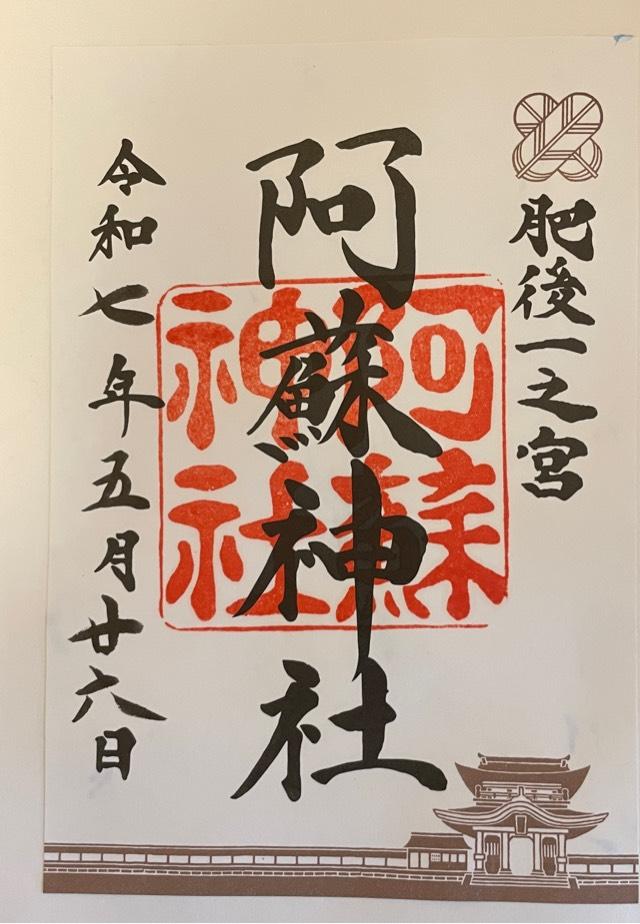 肥後一之宮
阿蘇神社
阿蘇神社
令和七年五月廿六日